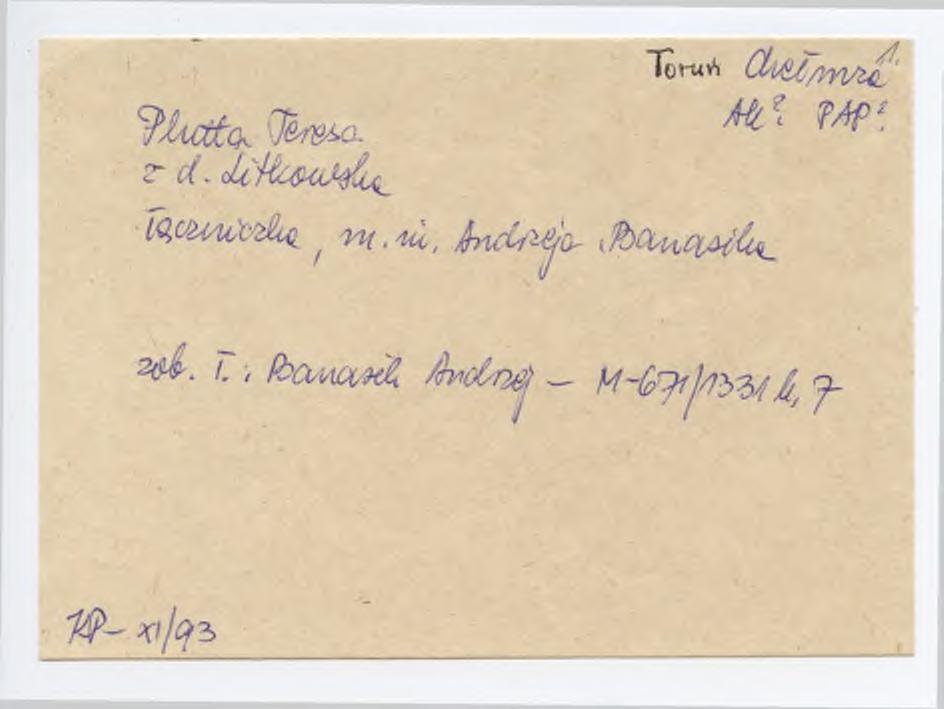 Toruń Chełmża 1.
AK? PAP?
Plutta Teresa
z d. Litkowska
Łączniczka, m.in. Andrzeja Banasika
zob. T.: Banasik Andrzej – M-671/1331 k, 7
KP– XI/93